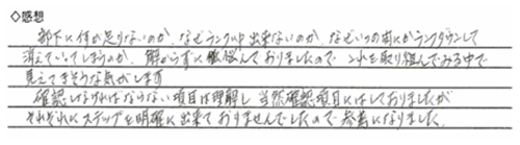 ◇感想
部下に何が足りないのか、なぜランクup出来ないのか、なぜいつの間にかランクダウンして
消えていってしまうのか、解からずに悩んでおりましたので、これを取り組んでみる中で
見えてきそうな気がします
確認しなければならない項目は理解し、当然確認項目にはしておりましたが
それぞれにステップを明確に出来ておりませんでしたので参考になりました。